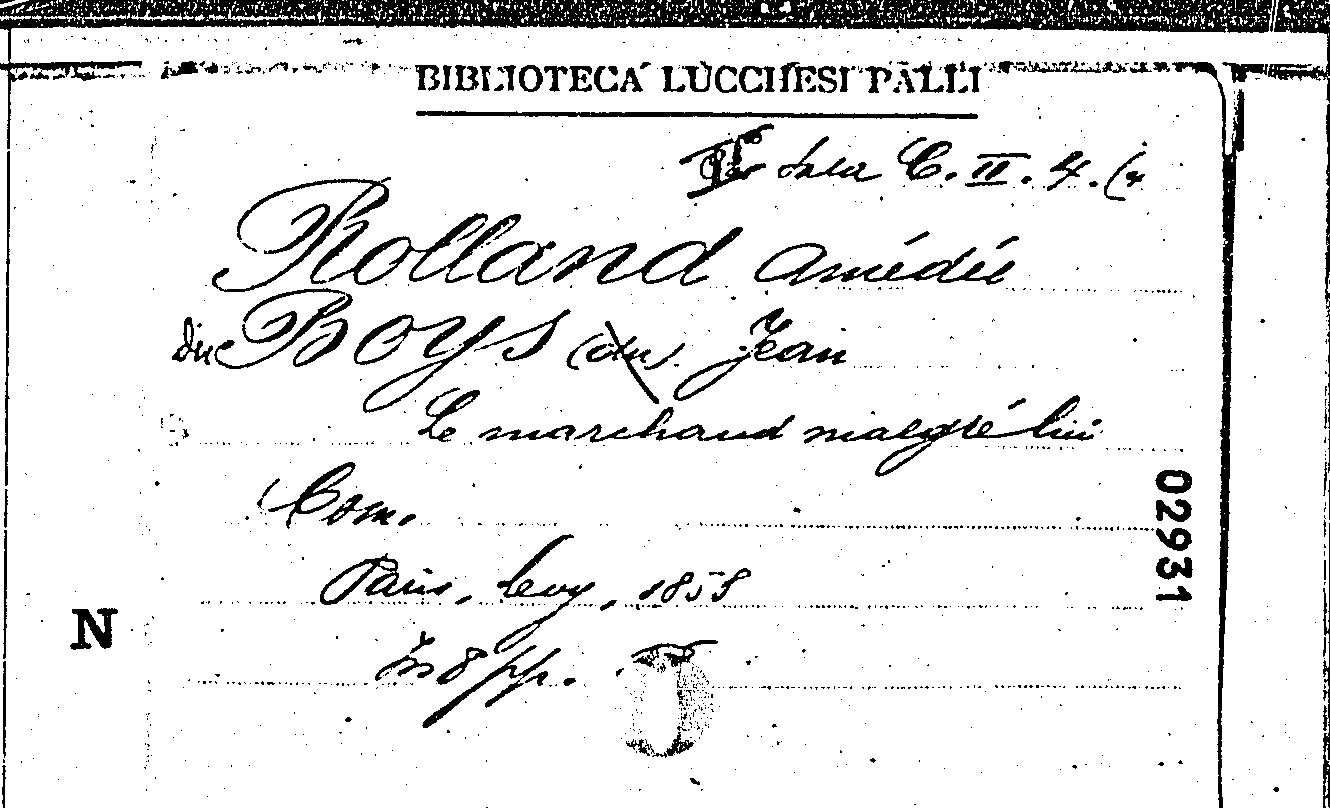 BIBLIOTECA LUCCHESI PALLI
Sala C. II. 4. (4
Rolland Amédée
du Boys (du). Jean
Le marchand malgré lui
Com.
Paris, Levy, 1858
In 8° pp.
02931
N